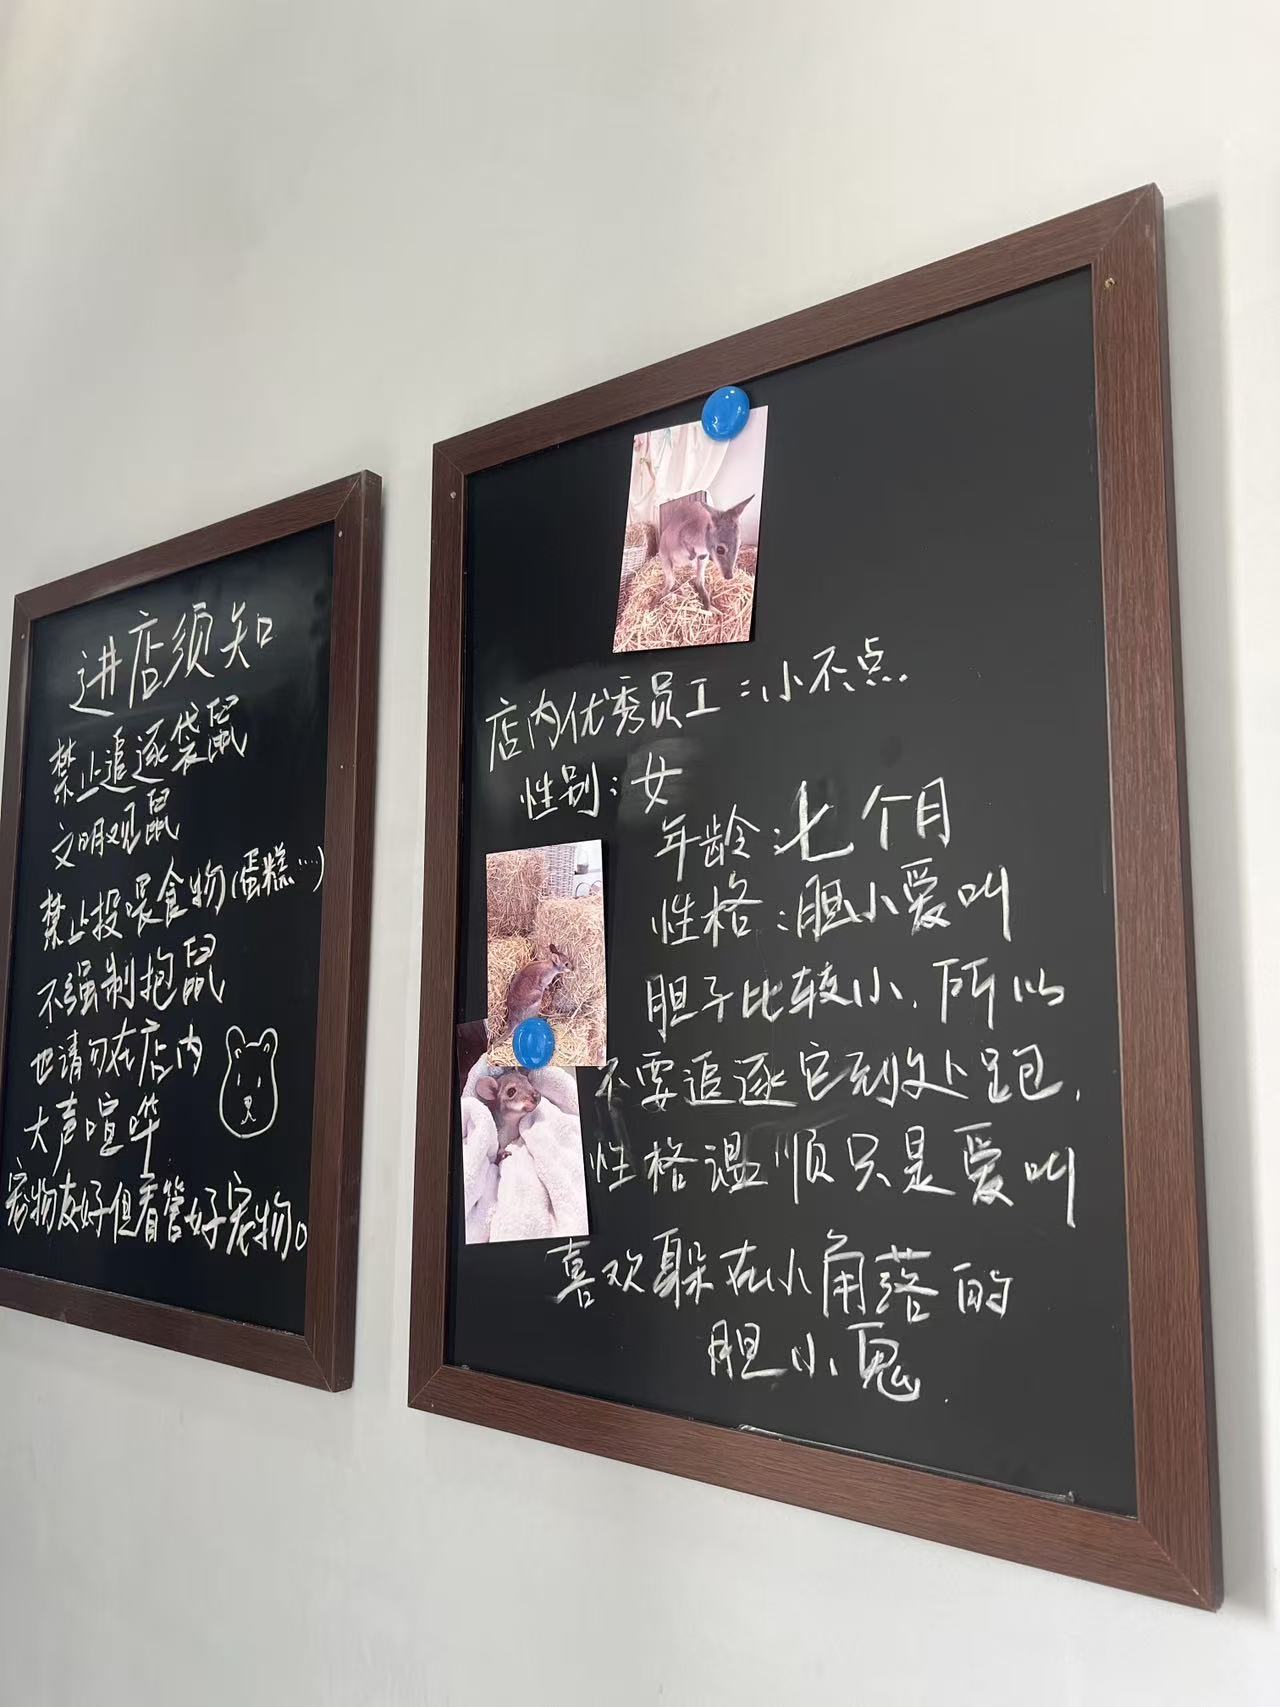 进店须知
禁止追逐袋鼠
文明观鼠
禁止投喂食物(蛋糕…)
不强制抱鼠
也请勿在店内
大声喧哗
宠物友好但看管好宠物。
店内优秀员工:小不点.
性别:女
年龄:七个月
性格:胆小爱叫
胆子比较小,所以
不要追逐它到处跑,
性格温顺只是爱叫
喜欢躲在小角落的
胆小鬼.